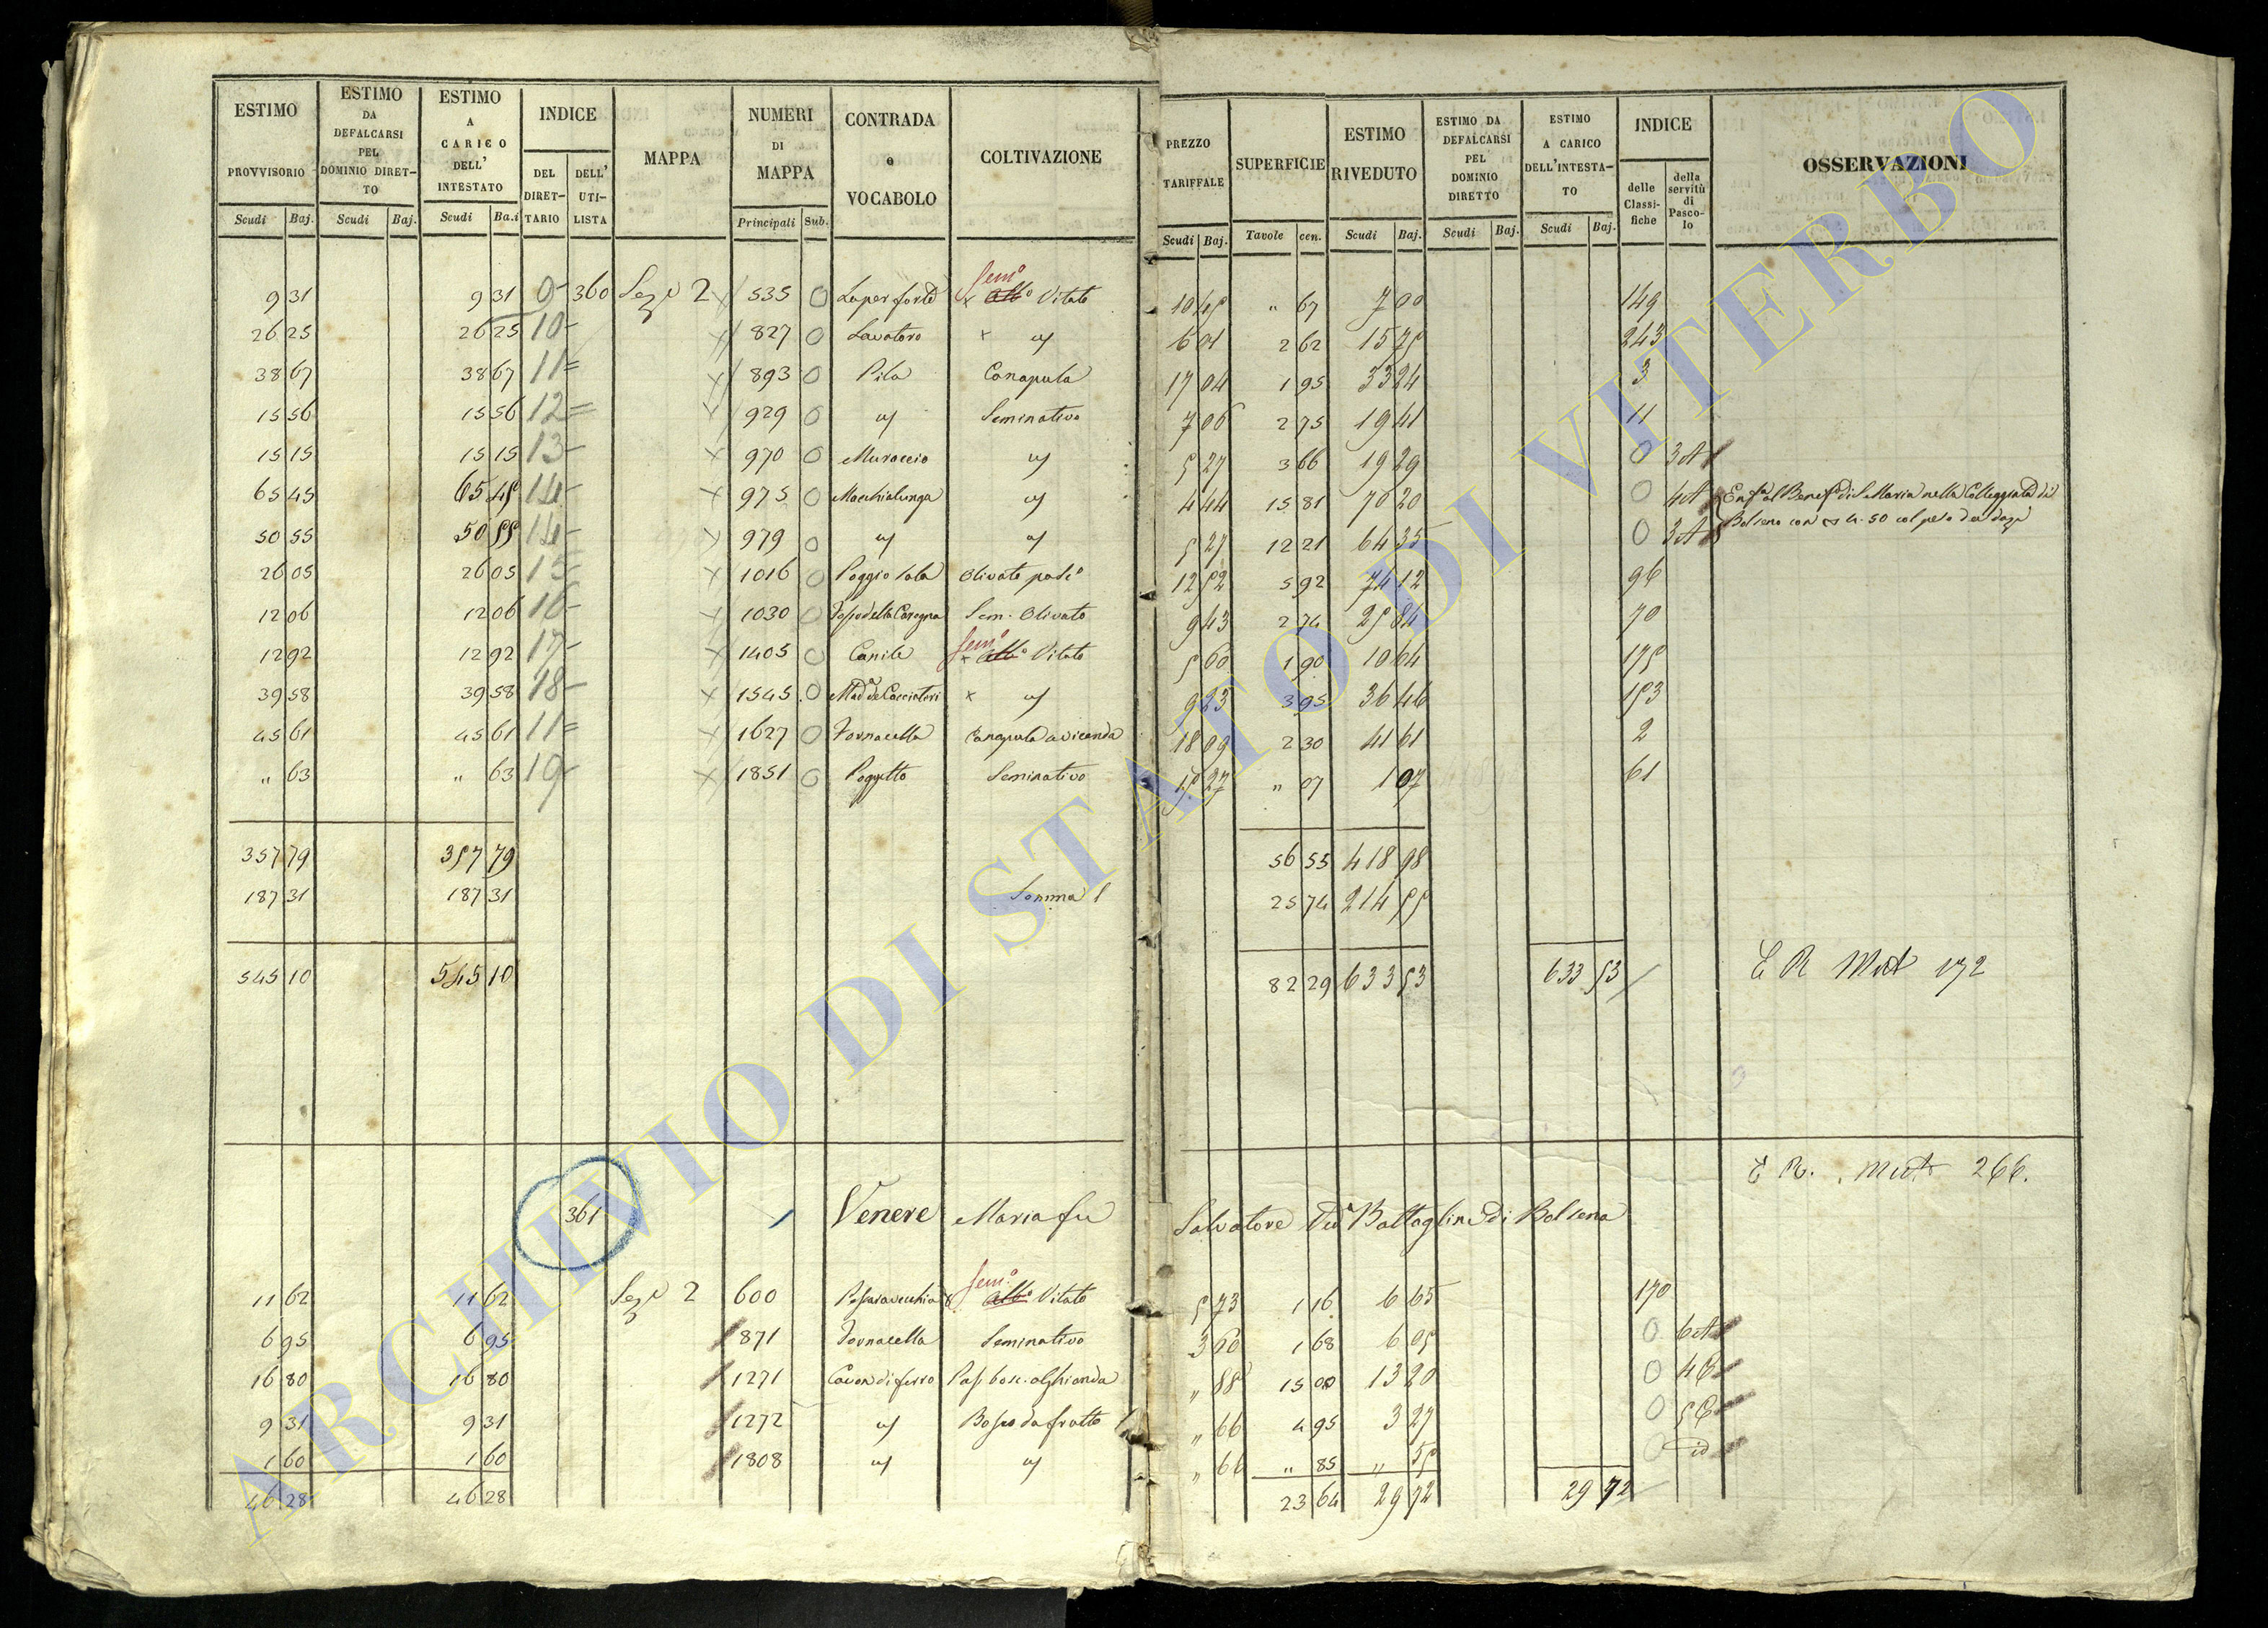 ESTIMO PROVVISORIO Scudi Baj.
ESTIMO DA DEFALCARSI PEL DOMINIO DIRET-TO Scudi Baj.
ESTIMO A CARICO DELL' INTESTATO Scudi Ba.i
INDICE DEL DIRET-TARIO DELL' UTI-LISTA
MAPPA
NUMERI DI MAPPA Principali Sub.
CONTRADA e VOCABOLO
COLTIVAZIONE
PREZZO TARIFFALE Scudi Baj.
SUPERFICIE Tavole cen.
ESTIMO RIVEDUTO Scudi Baj.
ESTIMO DA DEFALCARSI PEL DOMINIO DIRETTO Scudi Baj.
ESTIMO A CARICO DELL'INTESTA-TO Scudi Baj.
INDICE delle Classi-fiche della servitù di Pasco-lo
OSSERVAZIONI
9 31 9 31 9- 360 Sez.e 2 535 0 Laperforte Sem.o Alb.o Vitato 10 45 " 67 7 00 149
26 25 26 25 10- 827 0 Lavatoro x " 6 01 2 62 15 75 243
38 67 38 67 11= 893 0 Pila Canapula 17 04 1 95 33 24 3
15 56 15 56 12= 929 0 " Seminativo 7 06 2 75 19 41 11
15 15 15 15 13- 970 0 Muraccio " 5 27 3 66 19 29 0 3A
65 45 65 45 14- 975 0 Macchialunga " 4 44 15 81 70 20 0 4A Enf.a al Benef.o di S. Maria nella Colleggiata di
50 55 50 55 14- 979 0 " " 5 27 12 21 64 35 0 3A Bolsena con 4.50 col peso dei dazi
26 05 26 05 15- 1016 0 Poggio sala Olivato pasc.o 12 52 5 92 74 12 96
12 06 12 06 16- 1030 0 Fosso della Carogna Sem. Olivato 9 43 2 74 25 84 70
12 92 12 92 17- 1405 0 Canile Sem.o Alb.o Vitato 5 60 1 90 10 64 175
39 58 39 58 18- 1545 0 Mad.a de Cacciatori x " 9 23 3 95 36 46 153
45 61 45 61 11= 1627 0 Fornacella Canapula a vicenda 18 09 2 30 41 61 2
" 63 " 63 19- 1851 0 Poggetto Seminativo 15 27 " 07 1 07 61
357 79 357 79 56 55 418 98
187 31 187 31 Somma 25 74 214 55
545 10 545 10 82 29 633 53 633 53 E R Mut 172
E R. Mut 266.
361 Venere Maria fu Salvatore Ved.a Battaglini di Bolsena
11 62 11 62 Sez.e 2 600 Passaravecchia Sem.o Alb.o Vitato 5 73 1 16 6 65 170
6 95 6 95 871 Fornacella Seminativo 3 60 1 68 6 05 0 6A
16 80 16 80 1271 Cavon di ferro Pas. bosc. a Ghianda " 88 15 00 13 20 0 4B
9 31 9 31 1272 " Bosco da frutto " 66 4 95 3 27 0 5B
1 60 1 60 1808 " " " 66 " 85 " 55 0 id
46 28 46 28 23 64 29 72 29 72
ARCHIVIO DI STATO DI VITERBO